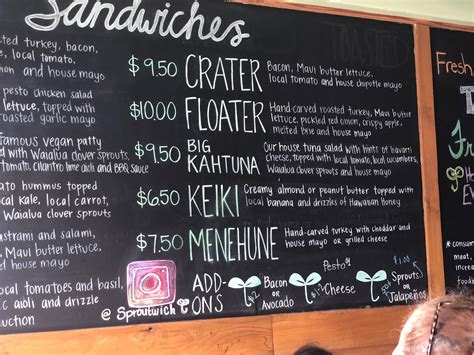 Sandwiches
TOASTED
Fresh
roasted turkey, bacon,
, local tomato,
on and house mayo
$9.50 CRATER Bacon, Maui butter lettuce,
local tomato and house chipotle mayo
pesto chicken salad
lettuce, topped with
roasted garlic mayo
$10.00 FLOATER Hand-carved roasted turkey, Maui butter
lettuce, pickled red onion, crispy apple,
melted brie and house mayo
famous vegan patty
with Waialua clover sprouts,
tomato, cilantro lime aioli and BBQ sauce
$9.50 BIG
KAHTUNA Our house tuna salad with hints of havarti
cheese, topped with local tomato, local cucumbers,
Waialua clover sprouts and house mayo
to hummus topped
local kale, local carrot,
Waialua clover sprouts
$6.50 KEIKI Creamy almond or peanut butter topped
with local banana and drizzles of Hawaiian honey
pastrami and salami,
, Maui butter lettuce,
red house mayo
$7.50 MENEHUNE Hand-carved turkey with cheddar and
house mayo or grilled cheese
local tomatoes and basil,
aioli and drizzle
uction
@ Sproutwich
ADD-
ONS
$2 Bacon
or
Avocado
Pesto
$1.2 Cheese
$1.00
Sprouts
or
Jalapeños
*consum